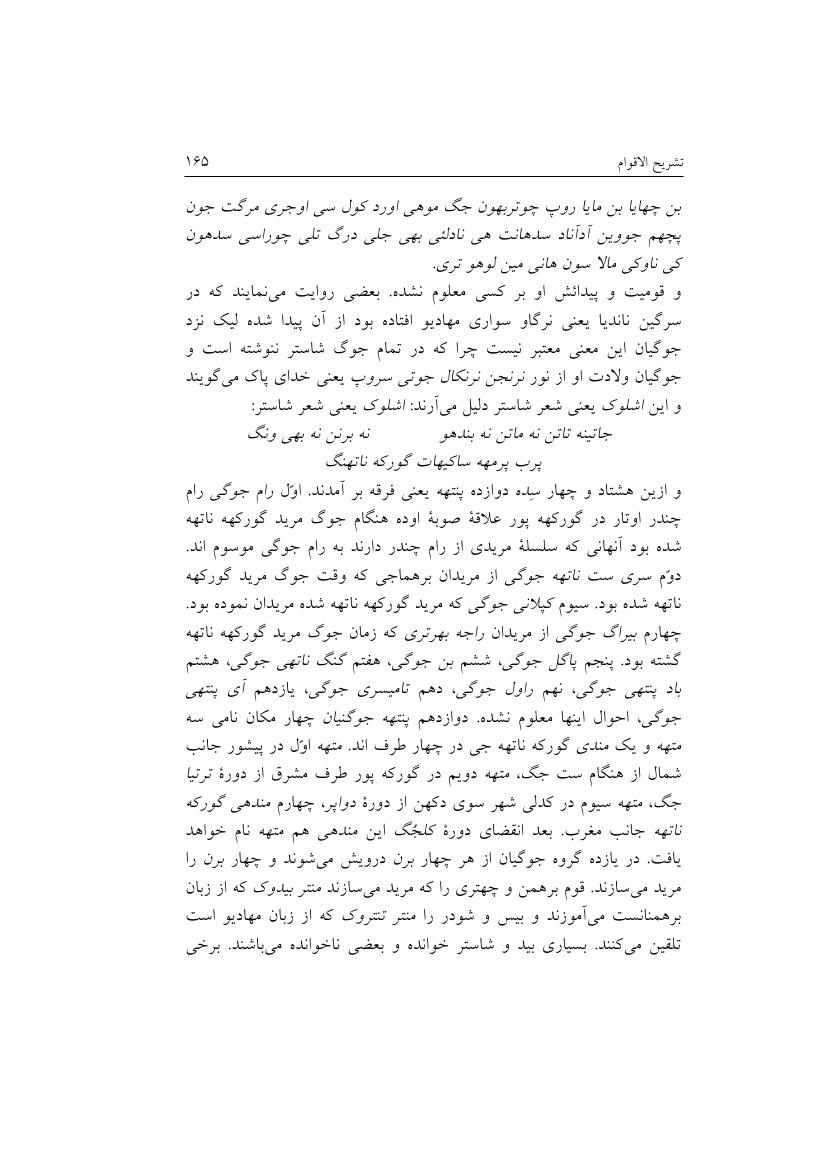 تشریح الاقوام ۱۶۵
بن چهایا بن مایا روپ چوتربهون جگ موهی اورد کول سی اوجری مرگت جون
پچهم جووین آدآناد سدهانت هی نادلئی بهی جلی درگ تلی چوراسی سدهون
کی ناوکی مالا سون هانی مین لوهو تری.
و قومیت و پیدائش او بر کسی معلوم نشده. بعضی روایت می‌نمایند که در
سرگین ناندیا یعنی نرگاو سواری مهادیو افتاده بود از آن پیدا شده لیک نزد
جوگیان این معنی معتبر نیست چرا که در تمام جوگ شاستر ننوشته است و
جوگیان ولادت او از نور نرنجن نرنکال جوتی سروپ یعنی خدای پاک می‌گویند
و این اشلوک یعنی شعر شاستر دلیل می‌آرند: اشلوک یعنی شعر شاستر:
جاتینه تاتن نه ماتن نه بندهو نه برنن نه بهی ونگ
پرب پرمهه ساکیهات گورکه ناتهنگ
و ازین هشتاد و چهار سِده دوازده پنتهه یعنی فرقه بر آمدند. اوّل رام جوگی رام
چندر اوتار در گورکهه پور علاقهٔ صوبهٔ اوده هنگام جوگ مرید گورکهه ناتهه
شده بود آنهانی که سلسلهٔ مریدی از رام چندر دارند به رام جوگی موسوم اند.
دوّم سری ست ناتهه جوگی از مریدان برهماجی که وقت جوگ مرید گورکهه
ناتهه شده بود. سیوم کپلانی جوگی که مرید گورکهه ناتهه شده مریدان نموده بود.
چهارم بیراگ جوگی از مریدان راجه بهرتری که زمان جوگ مرید گورکهه ناتهه
گشته بود. پنجم پاگل جوگی، ششم بن جوگی، هفتم گنگ ناتهی جوگی، هشتم
باد پنتهی جوگی، نهم راول جوگی، دهم تامیسری جوگی، یازدهم آی پنتهی
جوگی، احوال اینها معلوم نشده. دوازدهم پنتهه جوگنیان چهار مکان نامی سه
متهه و یک مندی گورکه ناتهه جی در چهار طرف اند. متهه اوّل در پیشور جانب
شمال از هنگام ست جگ، متهه دویم در گورکه پور طرف مشرق از دورهٔ ترتیا
جگ، متهه سیوم در کدلی شهر سوی دکهن از دورهٔ دواپر، چهارم مندهی گورکه
ناتهه جانب مغرب. بعد انقضای دورهٔ کلجُگ این مندهی هم متهه نام خواهد
یافت. در یازده گروه جوگیان از هر چهار برن درویش می‌شوند و چهار برن را
مرید می‌سازند. قوم برهمن و چهتری را که مرید می‌سازند منتر بیدوک که از زبان
برهمنانست می‌آموزند و بیس و شودر را منتر تنتروک که از زبان مهادیو است
تلقین می‌کنند. بسیاری بید و شاستر خوانده و بعضی ناخوانده می‌باشند. برخی